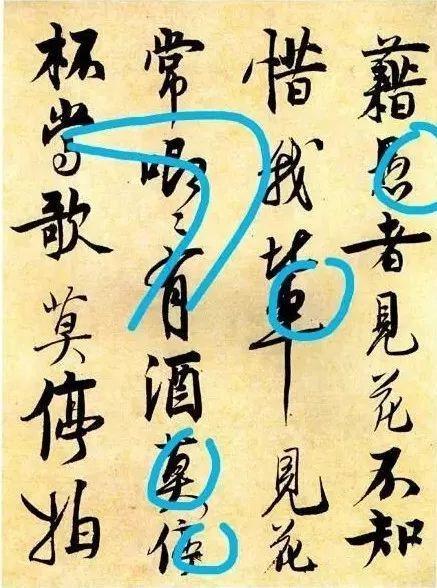 藉愚者見花不知
惜我輩見花
常眼々有酒莫停
杯當歌莫停拍